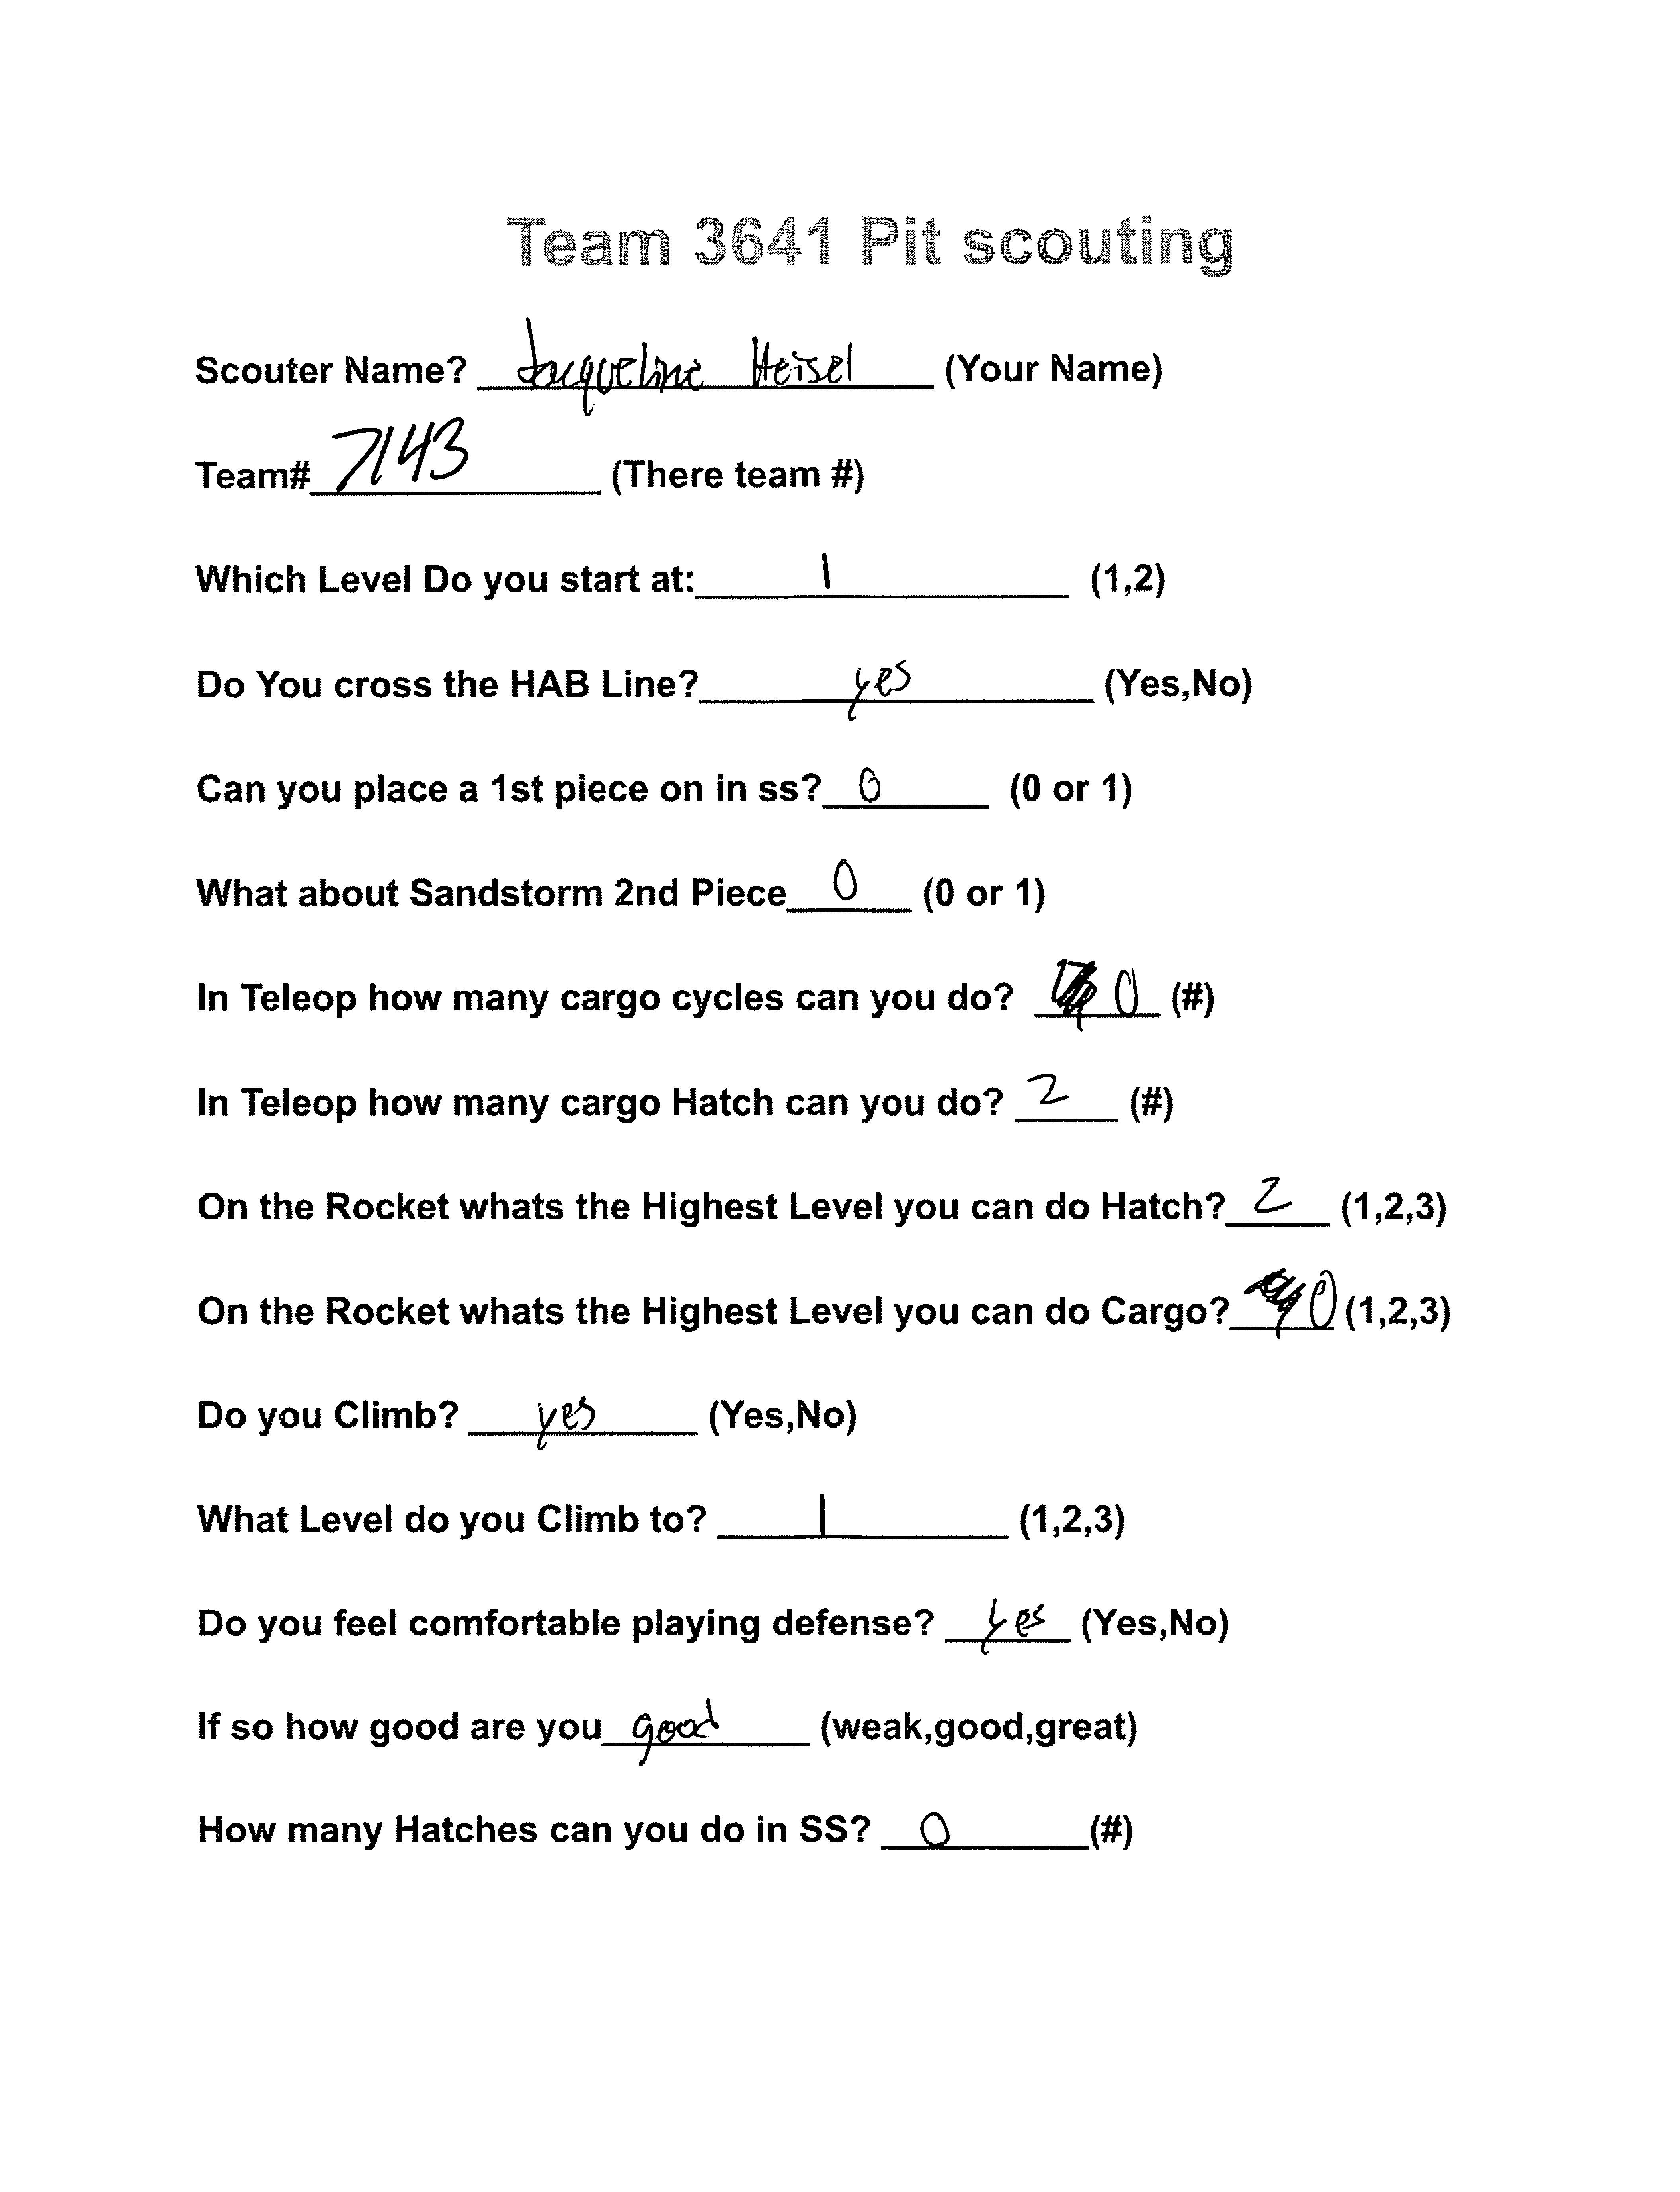 Team 3641 Pit scouting
Scouter Name? Jacqueline Heisel (Your Name)
Team# 7143 (There team #)
Which Level Do you start at: 1 (1,2)
Do You cross the HAB Line? yes (Yes,No)
Can you place a 1st piece on in ss? 0 (0 or 1)
What about Sandstorm 2nd Piece 0 (0 or 1)
In Teleop how many cargo cycles can you do? 0 (#)
In Teleop how many cargo Hatch can you do? 2 (#)
On the Rocket whats the Highest Level you can do Hatch? 2 (1,2,3)
On the Rocket whats the Highest Level you can do Cargo? 0 (1,2,3)
Do you Climb? yes (Yes,No)
What Level do you Climb to? 1 (1,2,3)
Do you feel comfortable playing defense? yes (Yes,No)
If so how good are you good (weak,good,great)
How many Hatches can you do in SS? 0 (#)